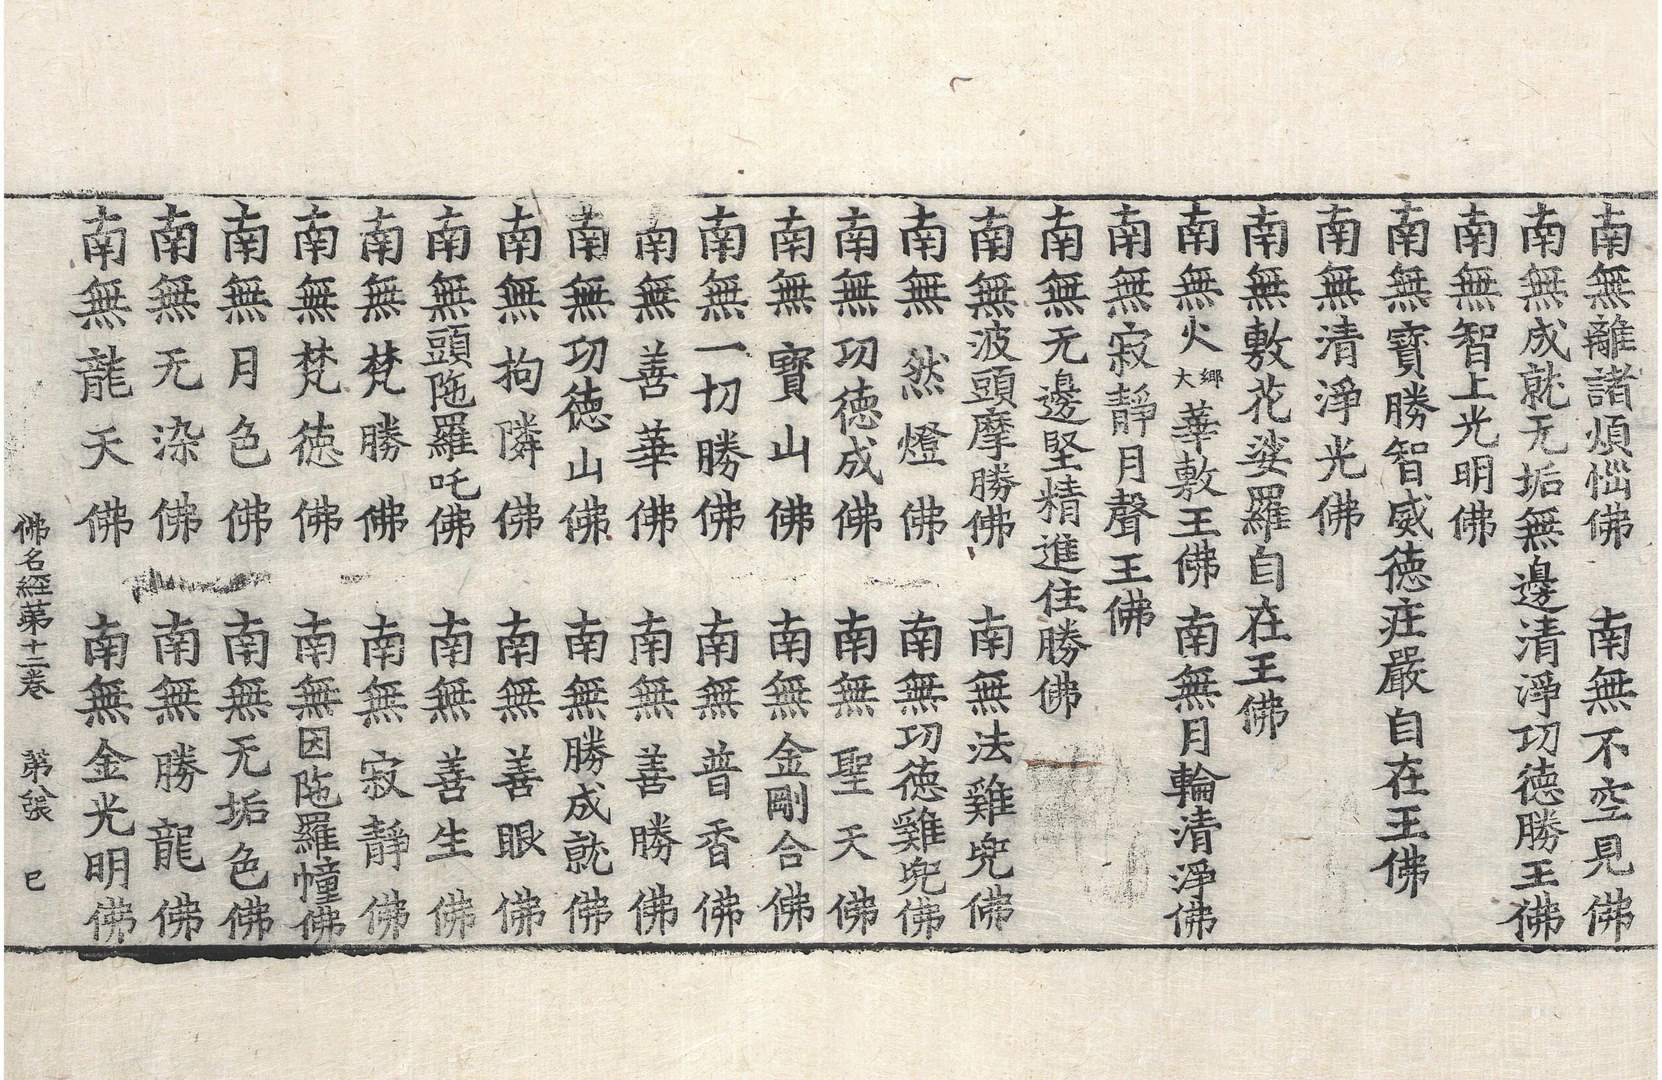 南無離諸煩惱佛 南無不空見佛
南無成就无垢無邊清淨功德勝王佛
南無智上光明佛
南無寶勝智威德疰嚴自在王佛
南無清淨光佛
南無敷花娑羅自在王佛
南無火鄉大華敷王佛 南無月輪清淨佛
南無寂靜月聲王佛
南無无邊堅精進住勝佛
南無波頭摩勝佛 南無法雞兜佛
南無然燈佛 南無功德雞兜佛
南無功德成佛 南無聖天佛
南無寶山佛 南無金剛合佛
南無一切勝佛 南無普香佛
南無善華佛 南無善勝佛
南無功德山佛 南無勝成就佛
南無拘隣佛 南無善眼佛
南無頭陁羅吒佛 南無善生佛
南無梵勝佛 南無寂靜佛
南無梵德佛 南無因陁羅幢佛
南無月色佛 南無无垢色佛
南無无染佛 南無勝龍佛
南無龍天佛 南無金光明佛
佛名經第十二卷 第八張 巳